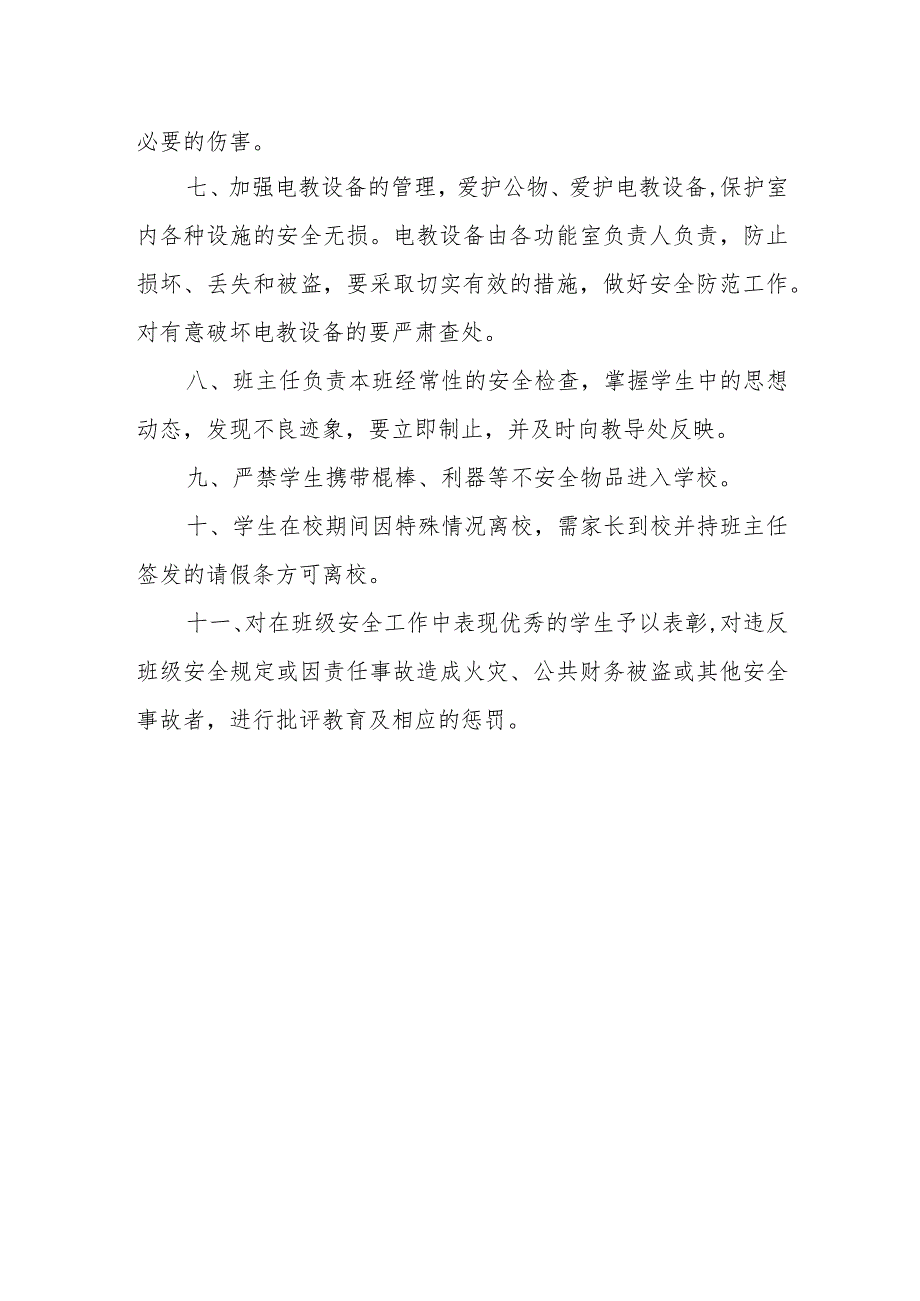 必要的伤害。
七、加强电教设备的管理，爱护公物、爱护电教设备,保护室
内各种设施的安全无损。电教设备由各功能室负责人负责，防止
损坏、丢失和被盗，要采取切实有效的措施，做好安全防范工作。
对有意破坏电教设备的要严肃查处。
八、班主任负责本班经常性的安全检查，掌握学生中的思想
动态，发现不良迹象，要立即制止，并及时向教导处反映。
九、严禁学生携带棍棒、利器等不安全物品进入学校。
十、学生在校期间因特殊情况离校，需家长到校并持班主任
签发的请假条方可离校。
十一、对在班级安全工作中表现优秀的学生予以表彰,对违反
班级安全规定或因责任事故造成火灾、公共财务被盗或其他安全
事故者，进行批评教育及相应的惩罚。